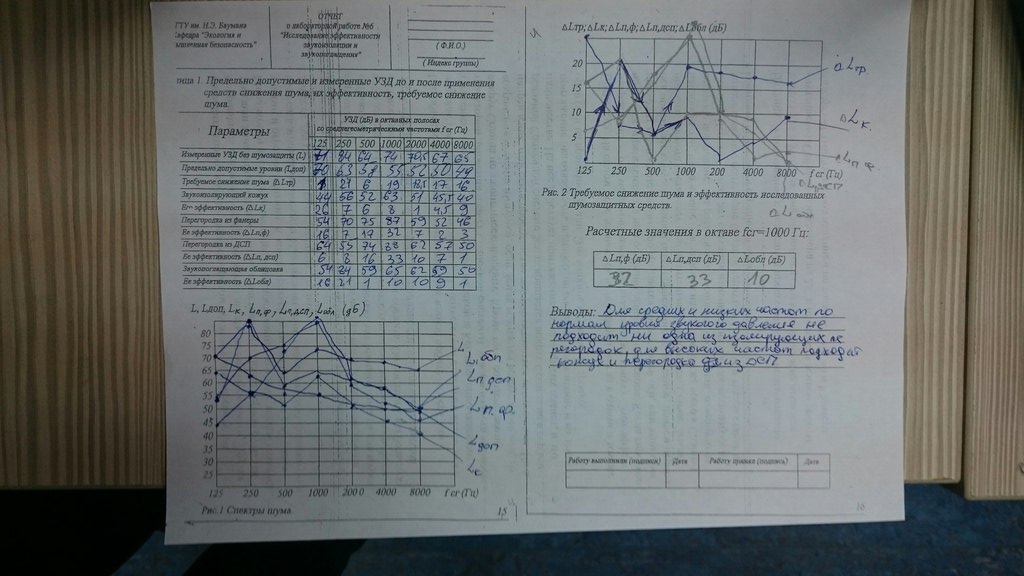 ГТУ им. Н.Э. Баумана
"Экология и
безопасность"
ОТЧЕТ
о лабораторной работе №6
"Исследование эффективности
звукоизоляции и
звукопоглощения"
( Ф.И.О.)
(Индекс группы)
1. Предельно допустимые и измеренные УЗД до и после применения
средств снижения шума, их эффективность, требуемое снижение
шума.
Параметры
УЗД (дБ) в октавных полосах
со среднегеометрическими частотами f сг (Гц)
125 250 500 1000 2000 4000 8000
Измеренные УЗД без шумозащиты (L) 84 64 74 67 65
Предельно допустимые уровни (Lдоп) 63 55 52 50 49
Требуемое снижение шума (△Lтр) 21 6 19 17 16
Звукоизолирующий кожух 44 56 52 63 40
Его эффективность (△Lк) 26 7 6 8 1 4,5 9
Перегородка из фанеры 54 70 75 87 59 52 46
Ее эффективность (△Lп,ф) 16 7 17 32 7 2 3
Перегородка из ДСП 64 55 74 62 57 50
Ее эффективность (△Lп, дсп) 6 8 16 33 10 7 1
Звукопоглощающая облицовка 54 84 59 65 62 59 50
Ее эффективность (△Lобл) 16 21 1 10 10 9 1
L, Lдоп, Lк, Lп,ф, Lп,дсп, Lобл (дБ)
80
75
70
65
60
55
50
45
40
35
30
25
L
Lп дсп
Lп. ф.
Lдоп
125 250 500 1000 2000 4000 8000 f сг (Гц)
Рис.1 Спектры шума.
15
△Lтр;△Lк;△Lп,ф;△Lп,дсп;△Lобл (дБ)
20
15
10
5
△Lтр
△Lк.
125 250 500 1000 2000 4000 8000 f сг (Гц)
Рис. 2 Требуемое снижение шума и эффективность исследованных
шумозащитных средств.
Расчетные значения в октаве fсг=1000 Гц:
△Lп,ф (дБ) △Lп,дсп (дБ) △Lобл (дБ)
32 33 10
Выводы: Для средних и низких частот по
нормам уровня звукового давления не
подходит ни одна из изолирующих пе
регородок, для высоких частот подходят
кожух и перегородка из ДСП
Работу выполнил (подпись) Дата Работу принял (подпись) Дата
16